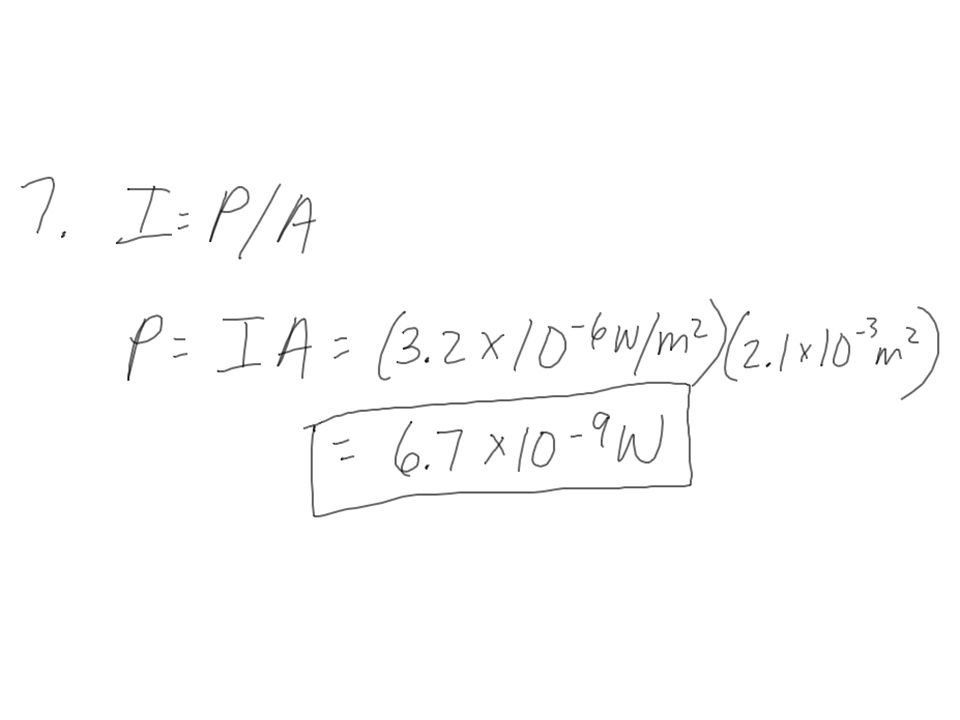 7. I = P/A
P = IA = (3.2 x 10⁻⁶ W/m²)(2.1 x 10⁻³ m²)
= 6.7 x 10⁻⁹ W